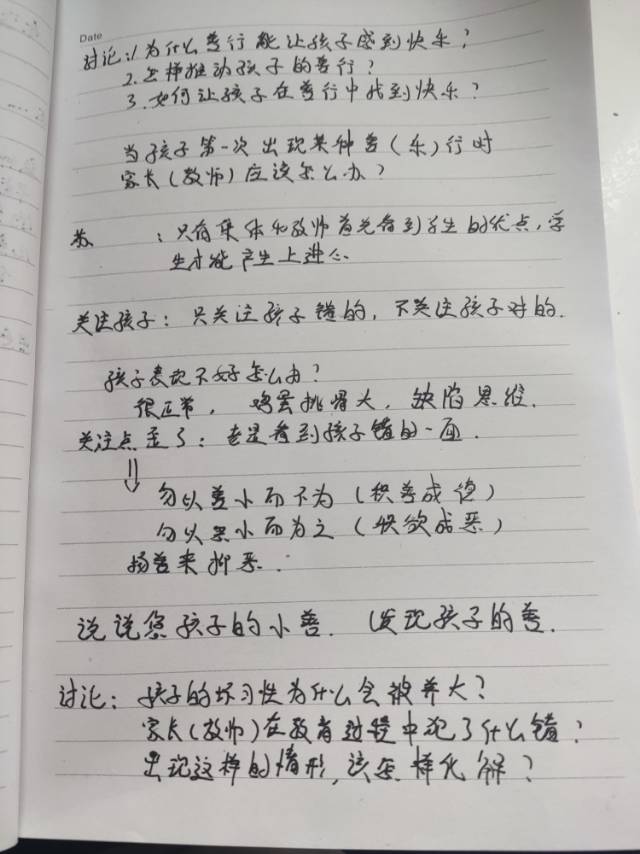 Date
讨论:1.为什么善行能让孩子感到快乐?
2.怎样推动孩子的善行?
3.如何让孩子在善行中找到快乐?
当孩子第一次出现某种善(乐)行时
家长(教师)应该怎么办?
苏 :只有集体和教师首先看到学生的优点,学
生才能产生上进心
关注孩子:只关注孩子错的,不关注孩子对的.
孩子表现不好怎么办?
很正常,鸡蛋挑骨头,缺陷思维.
关注点歪了:老是看到孩子错的一面.
⇓
勿以善小而不为(积善成德)
勿以恶小而为之(纵欲成恶)
扬善来抑恶.
说说您孩子的小善.(发现孩子的善.
讨论:孩子的坏习性为什么会被养大?
家长(教师)在教育过程中犯了什么错?
出现这样的情形,该怎样化解?